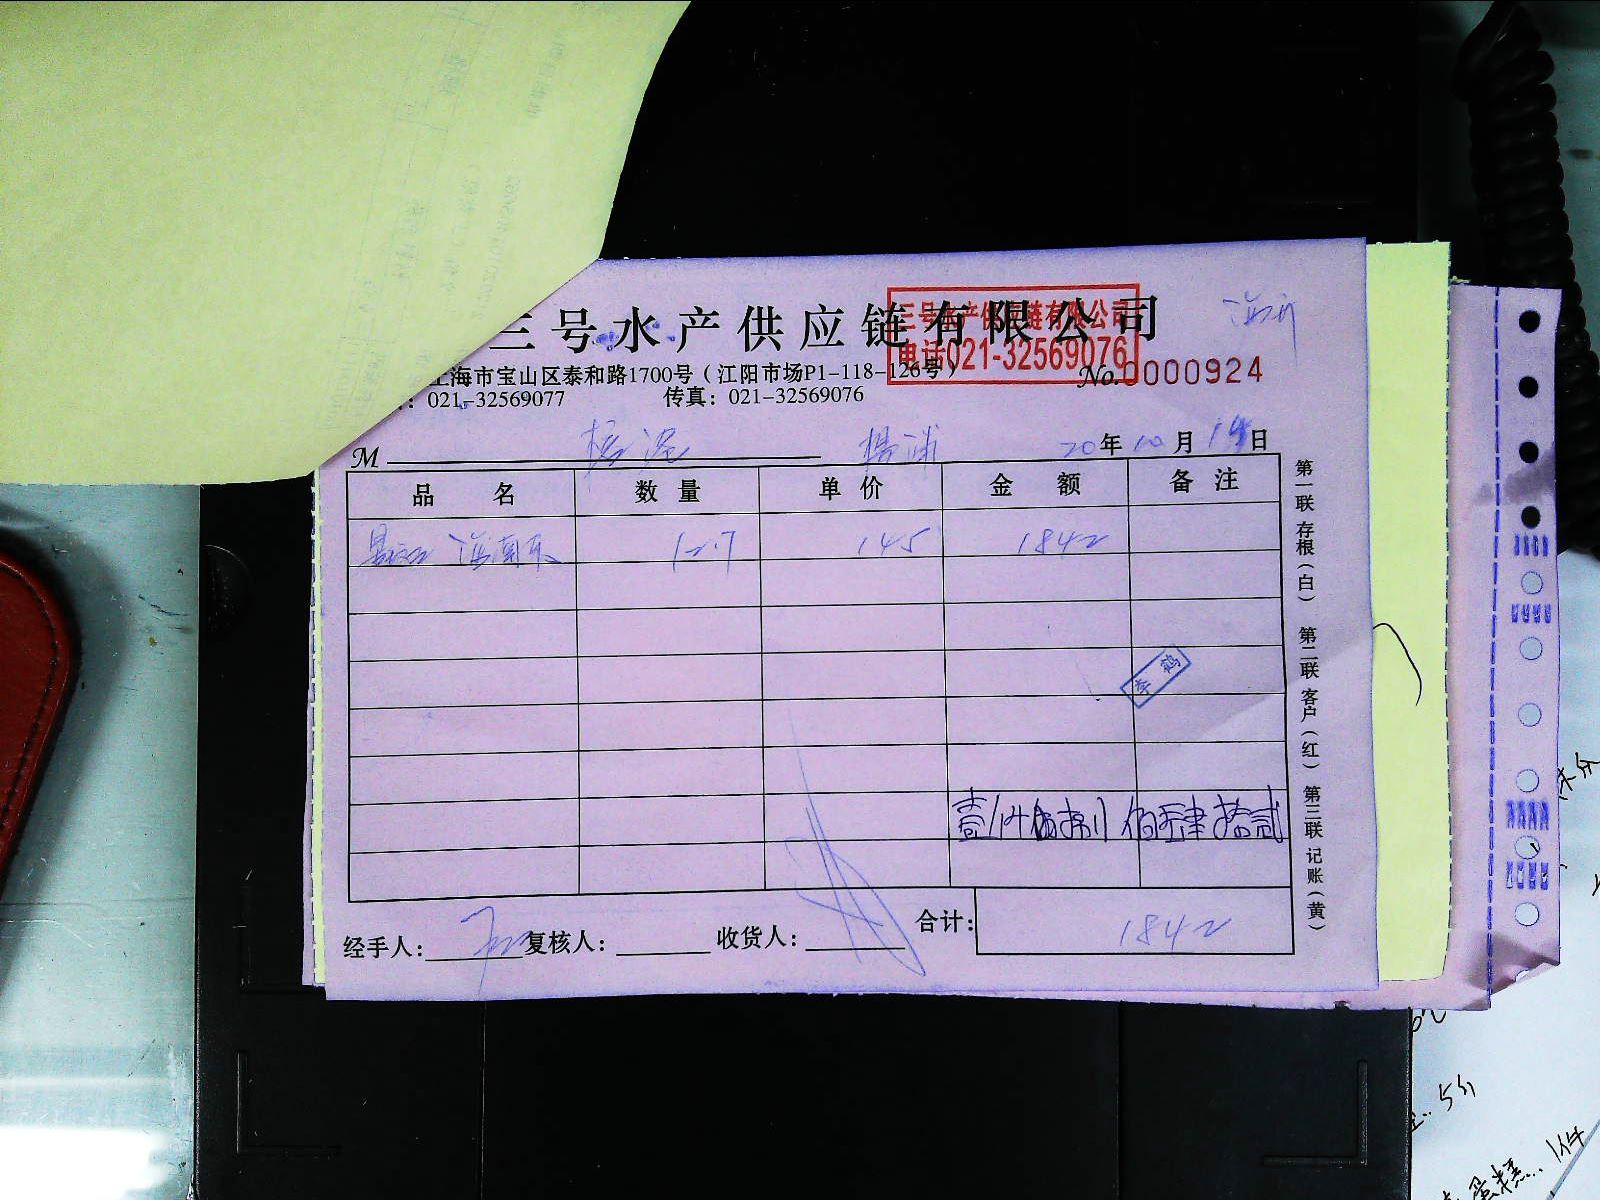 三号水产供应链有限公司
三号水产供应链有限公司
电话021-32569076
上海市宝山区泰和路1700号（江阳市场P1-118-126号）
No.0000924
：021-32569077 传真：021-32569076
M 杨浦 20年10月19日
品名 数量 单价 金额 备注
海南东 12.7 145 1842
李鹤
壹仟捌佰肆拾贰
合计：1842
经手人： 复核人： 收货人：
第一联 存根（白） 第二联 客户（红） 第三联 记账（黄）
未分
5斤
蛋糕... 1件